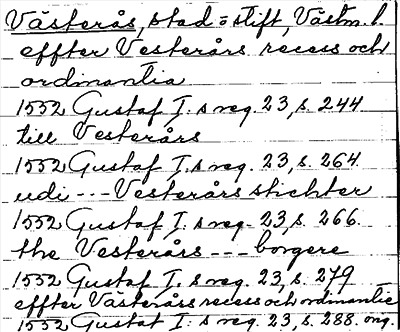 Västerås, stad = stift, Västm. l.
effter Vesterårs recess och
ordinantia
1552 Gustaf I:s reg. 23, s. 244
till Vesterårs
1552 Gustaf I:s reg. 23, s. 264.
udi --- Vesterårs stichter
1552 Gustaf I:s reg. 23, s. 266.
the Vesteråss --- borgere
1552 Gustaf I:s reg. 23, s. 279
effter Västeråss recess och ordinantie
1552 Gustaf I:s reg. 23, s. 288. orig.